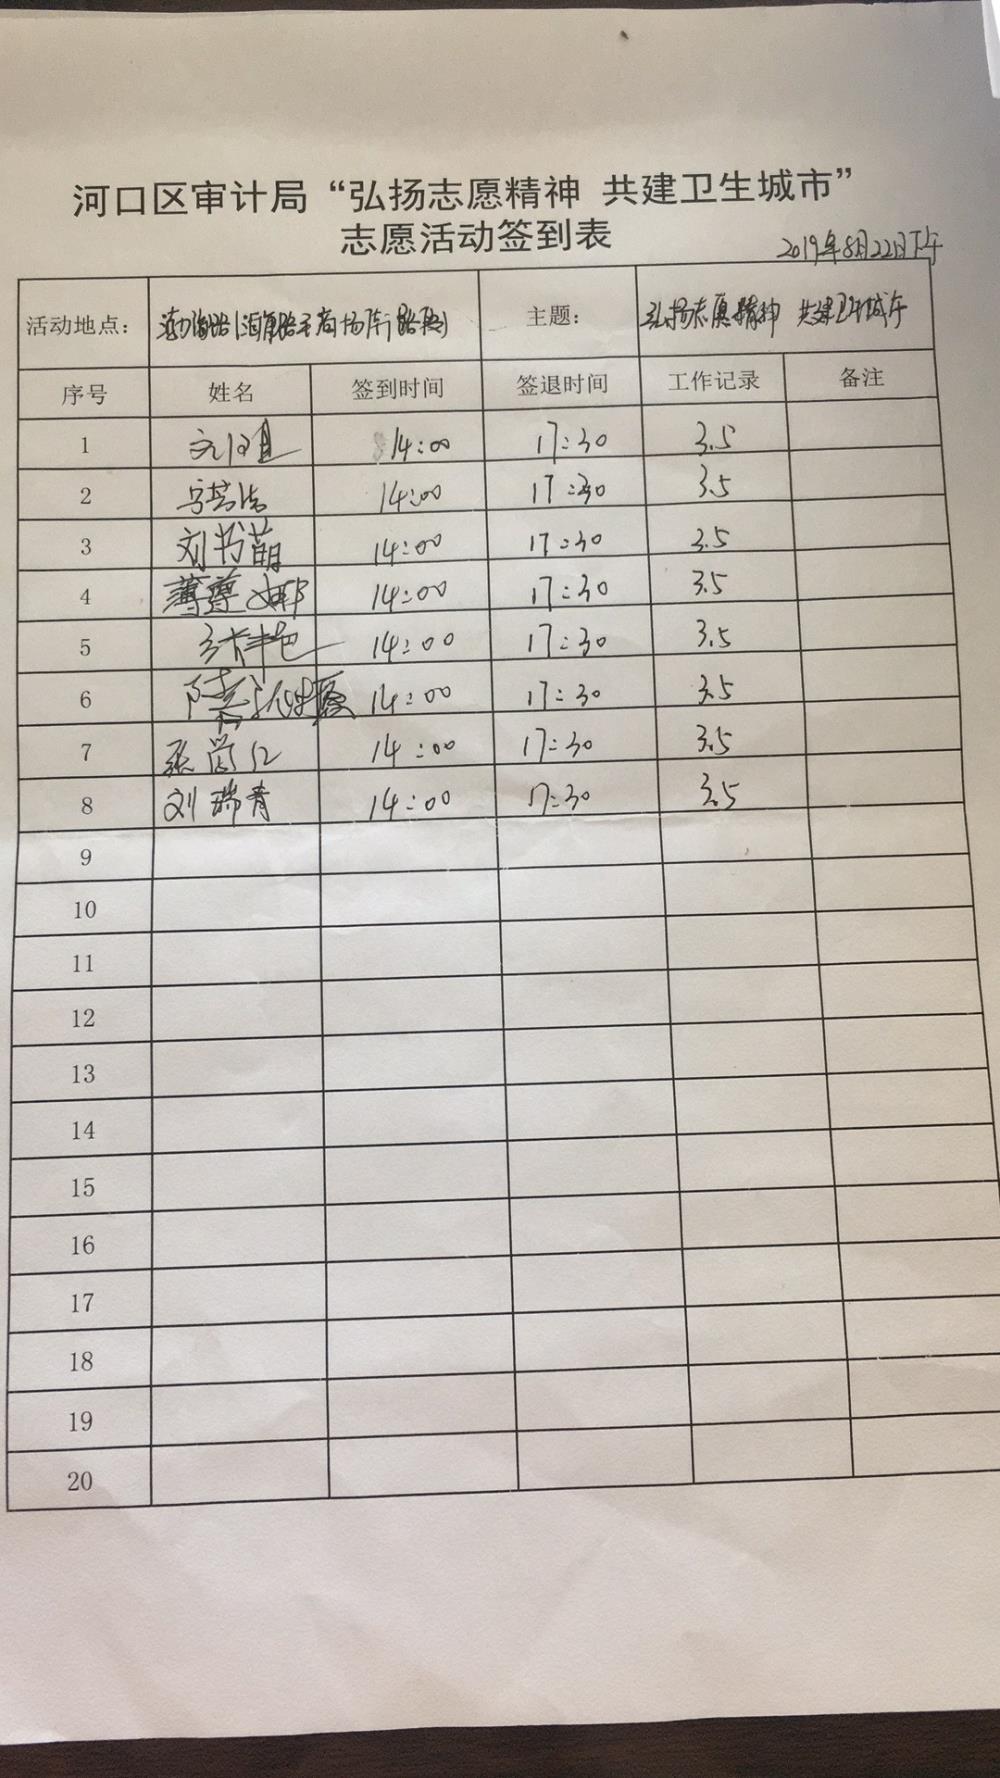 河口区审计局“弘扬志愿精神 共建卫生城市”
志愿活动签到表
2019年8月22日下午
活动地点： 主题： 弘扬志愿精神 共建卫生城市
序号 姓名 签到时间 签退时间 工作记录 备注
1 14:00 17:30 3.5
2 14:00 17:30 3.5
3 刘书萌 14:00 17:30 3.5
4 薄尊娜 14:00 17:30 3.5
5 14:00 17:30 3.5
6 14:00 17:30 3.5
7 14:00 17:30 3.5
8 刘瑞青 14:00 17:30 3.5
9
10
11
12
13
14
15
16
17
18
19
20